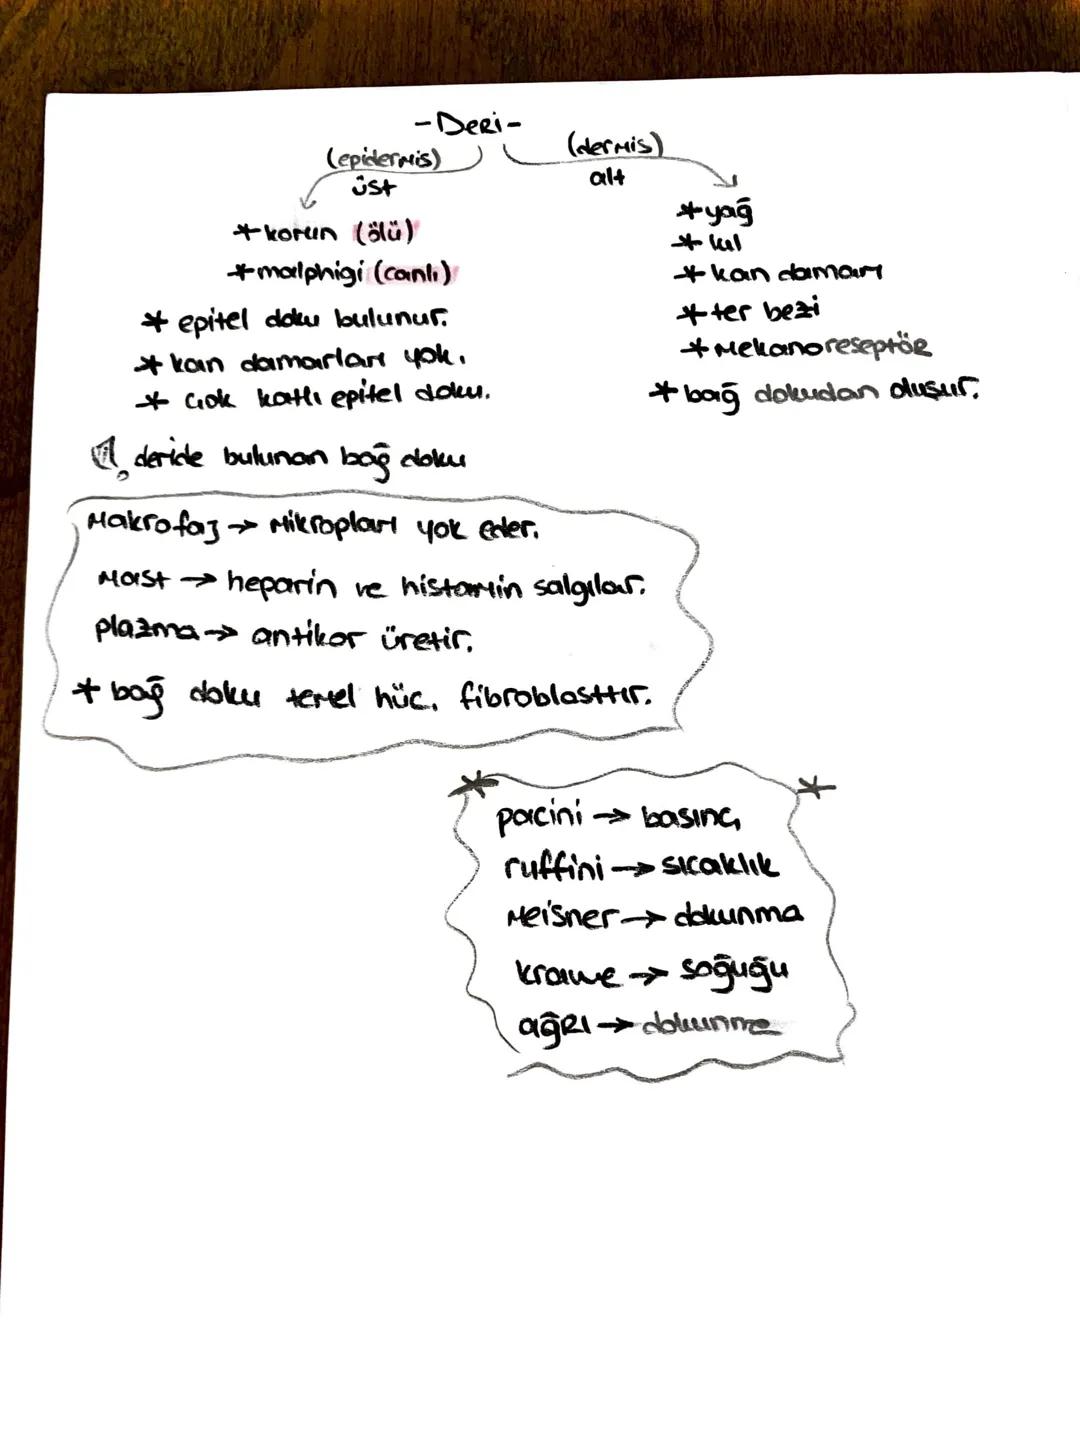 -Deri-
(epidermis)
üst
(dermis)
alt
*korun (ölü)
*malphigi (canlı)
* epitel doku bulunur.
* kan damarları yok.
* çok katlı epitel doku.
*yağ
* kıl
* kan damarı
*ter bezi
*Mekanoreseptör
* bağ dokudan oluşur.
deride bulunan bağ doku
Makrofaj → Mikropları yok eder.
Mast → heparin ve histamin salgılar.
plazma → antikor üretir.
* bağ doku temel hüc. fibroblasttır.
pacini → basınç
ruffini → sıcaklık
Meisner → dokunma
krause → soğuğu
ağrı → dokunma